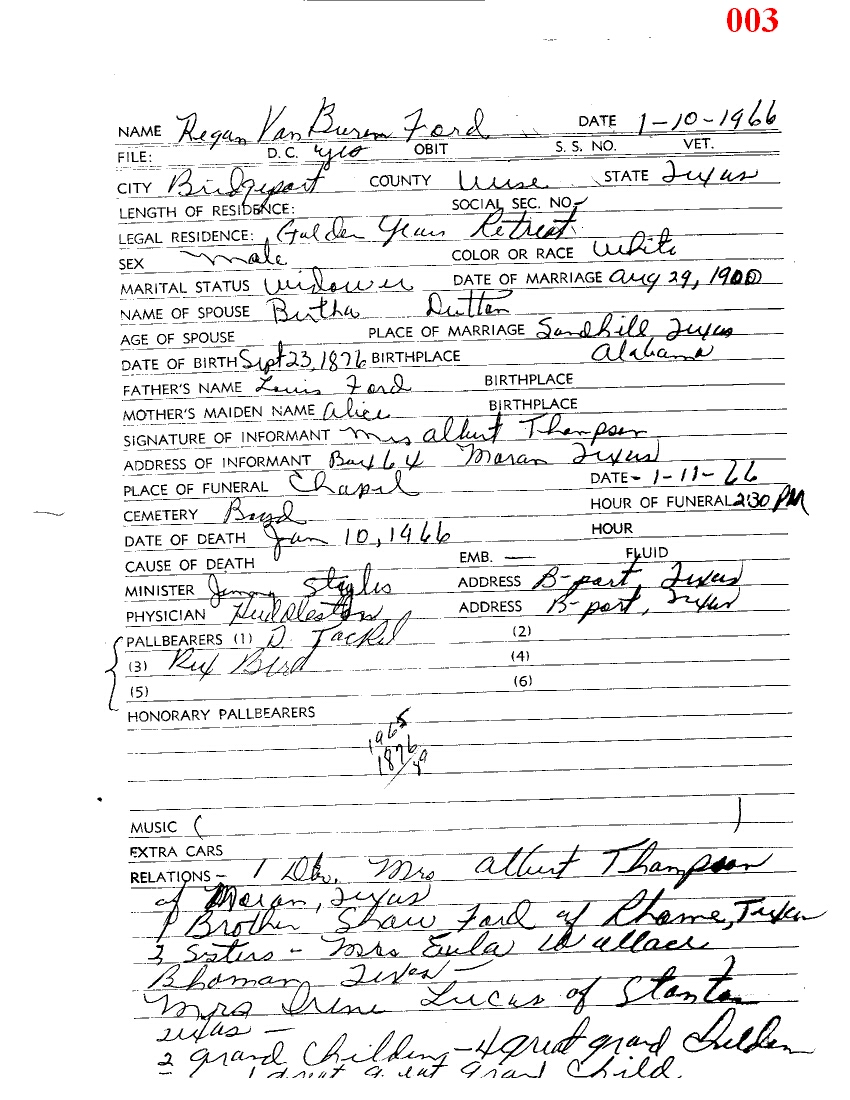 003
NAME Regan Van Buren Ford DATE 1-10-1966
FILE: D.C. yes OBIT S. S. NO. VET.
CITY Bridgeport COUNTY Wise STATE Texas
LENGTH OF RESIDENCE: SOCIAL SEC. NO-
LEGAL RESIDENCE: Golden Years Retreat
SEX Male COLOR OR RACE White
MARITAL STATUS Widower DATE OF MARRIAGE Aug 29, 1900
NAME OF SPOUSE Birtha Dutton
AGE OF SPOUSE PLACE OF MARRIAGE Sandhill Texas
DATE OF BIRTH Sept 23, 1876 BIRTHPLACE Alabama
FATHER'S NAME Louis Ford BIRTHPLACE
MOTHER'S MAIDEN NAME Alice BIRTHPLACE
SIGNATURE OF INFORMANT Mrs Albert Thompson
ADDRESS OF INFORMANT Box 64 Moran Texas
PLACE OF FUNERAL Chapel DATE - 1-11-66
CEMETERY Boyd HOUR OF FUNERAL 2:30 PM
DATE OF DEATH Jan 10, 1966 HOUR
CAUSE OF DEATH EMB. — FLUID
MINISTER Jimmy Styles ADDRESS B-port, Texas
PHYSICIAN Huddleston ADDRESS B-port, Texas
PALLBEARERS (1) D. Tackel (2)
(3) Rex Bird (4)
(5) (6)
HONORARY PALLBEARERS
1965
1876
89
MUSIC ( )
EXTRA CARS
RELATIONS - 1 Dtr. Mrs Albert Thompson
of Moran, Texas
1 Brother Shaw Ford of Rhome, Texas
3 Sisters - Mrs Eula Wallace
Texas -
Mrs Irene Lucas of Stanton
Texas -
2 grand Children - 4 great grand Children
1 great great grand Child.